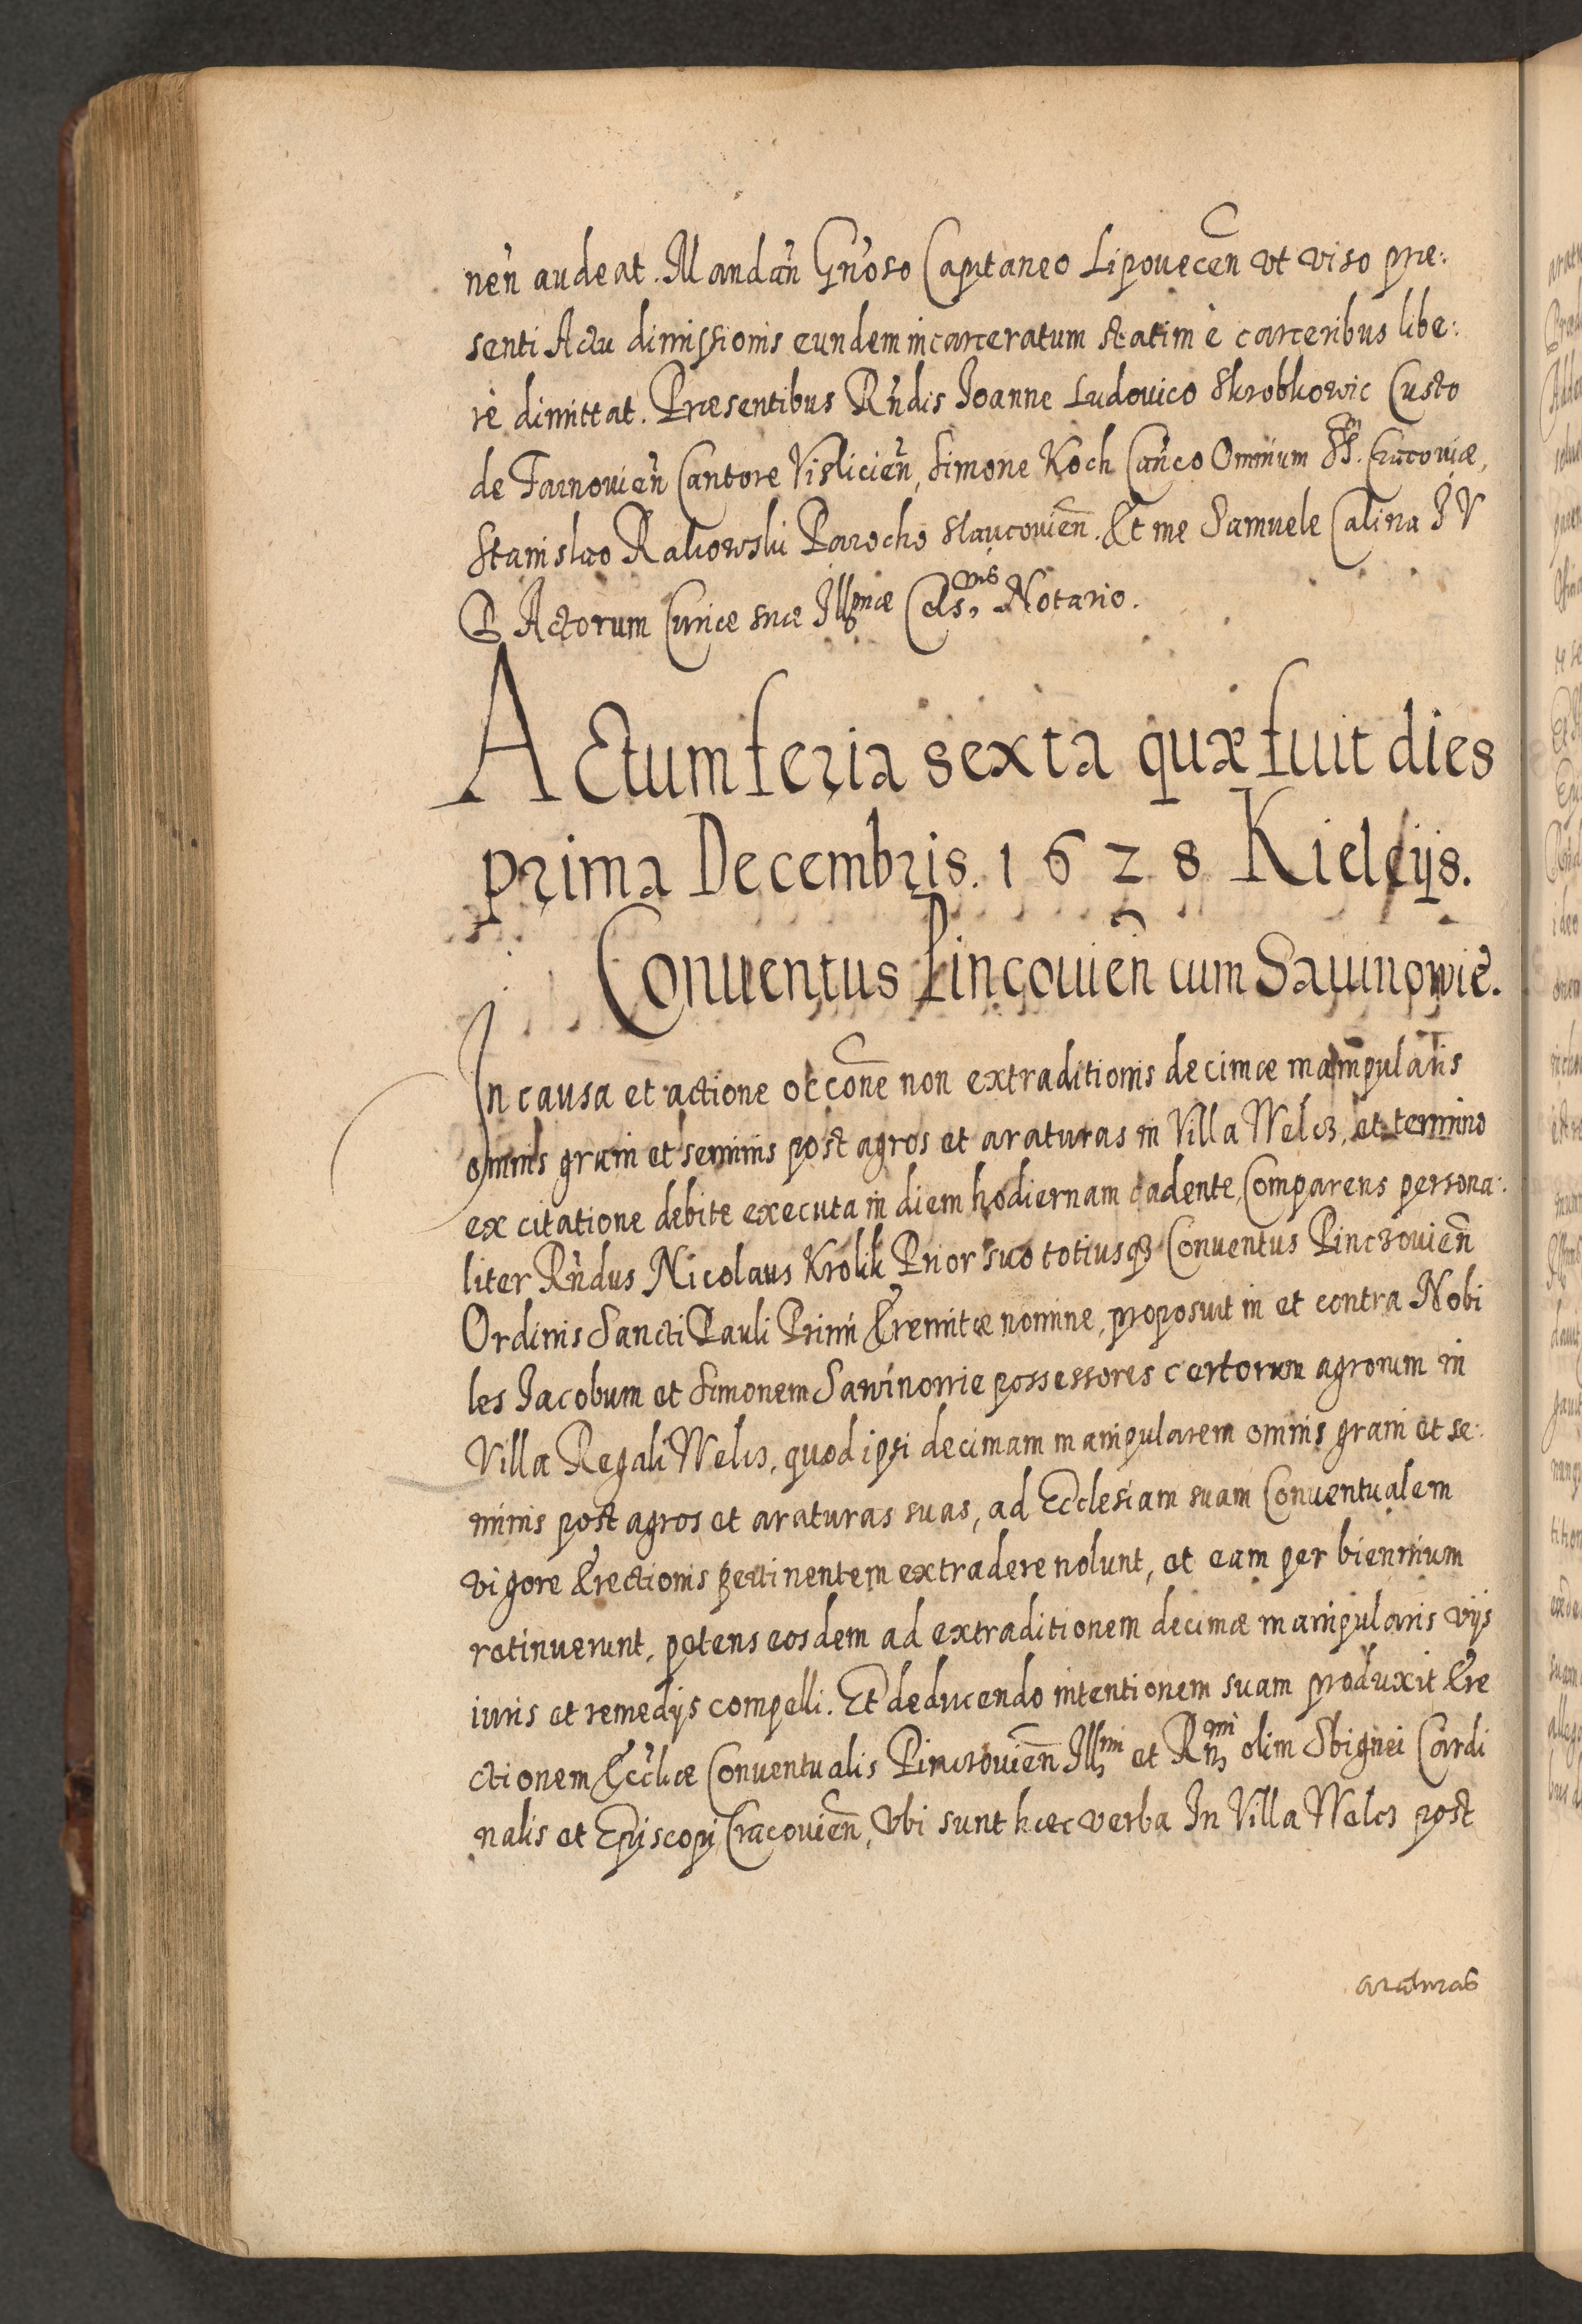 neñ audeat. Mandañ Gñoso Capitaneo Lipouecen̄ vt viso præ:
senti Actu dimissionis eundem incarceratum statim è carceribus libe:
rè dimittat. Præsentibus Rñdis Joanne Ludovico Skrobkowic Custo
de Tarnovieñ Cantore Vislicieñ, Simone Koch Cañco Omnium SS. Cracoviæ,
Stanislao Rakowski Parocho Slaucovień. Et me Samuele Calina J V
D Actorum Curiæ suæ Illmæ Cels:nis Notario.
Actum feria sexta quæ fuit dies
prima Decembris. 1628 Kielcijs.
Conuentus Pinçouień cum Sauinowie.
In causa et actione occōne non extraditionis decimæ manipularis
omnis grani et seminis post agros et araturas in Villa Welcz, et termino
ex citatione debite executa in diem hodiernam cadente, Comparens persona:
liter Rñdus Nicolaus Krolik Prior suo totiusqz Conuentus Pinczouień
Ordinis Sancti Pauli Primi Eremitæ nomine, proposuit in et contra Nobi
les Jacobum et Simonem Sawinowie possessores certorum agrorum in
Villa Regali Welcz, quod ipsi decimam manipularem omnis grani et se:
minis post agros et araturas suas, ad Ecclesiam suam Conuentualem
vigore Erectionis pertinentem extradere nolunt, et eam per biennium
retinuerunt, petens eosdem ad extraditionem decimæ manipularis vijs
iuris et remedijs compelli. Et deducendo intentionem suam produxit Ere
ctionem Eccliæ Conuentualis Pinczouień Illmi et Rmi olim Sbignei Cardi
nalis et Episcopi Cracouień, Vbi sunt hæc verba In Villa Welcz post
araturas